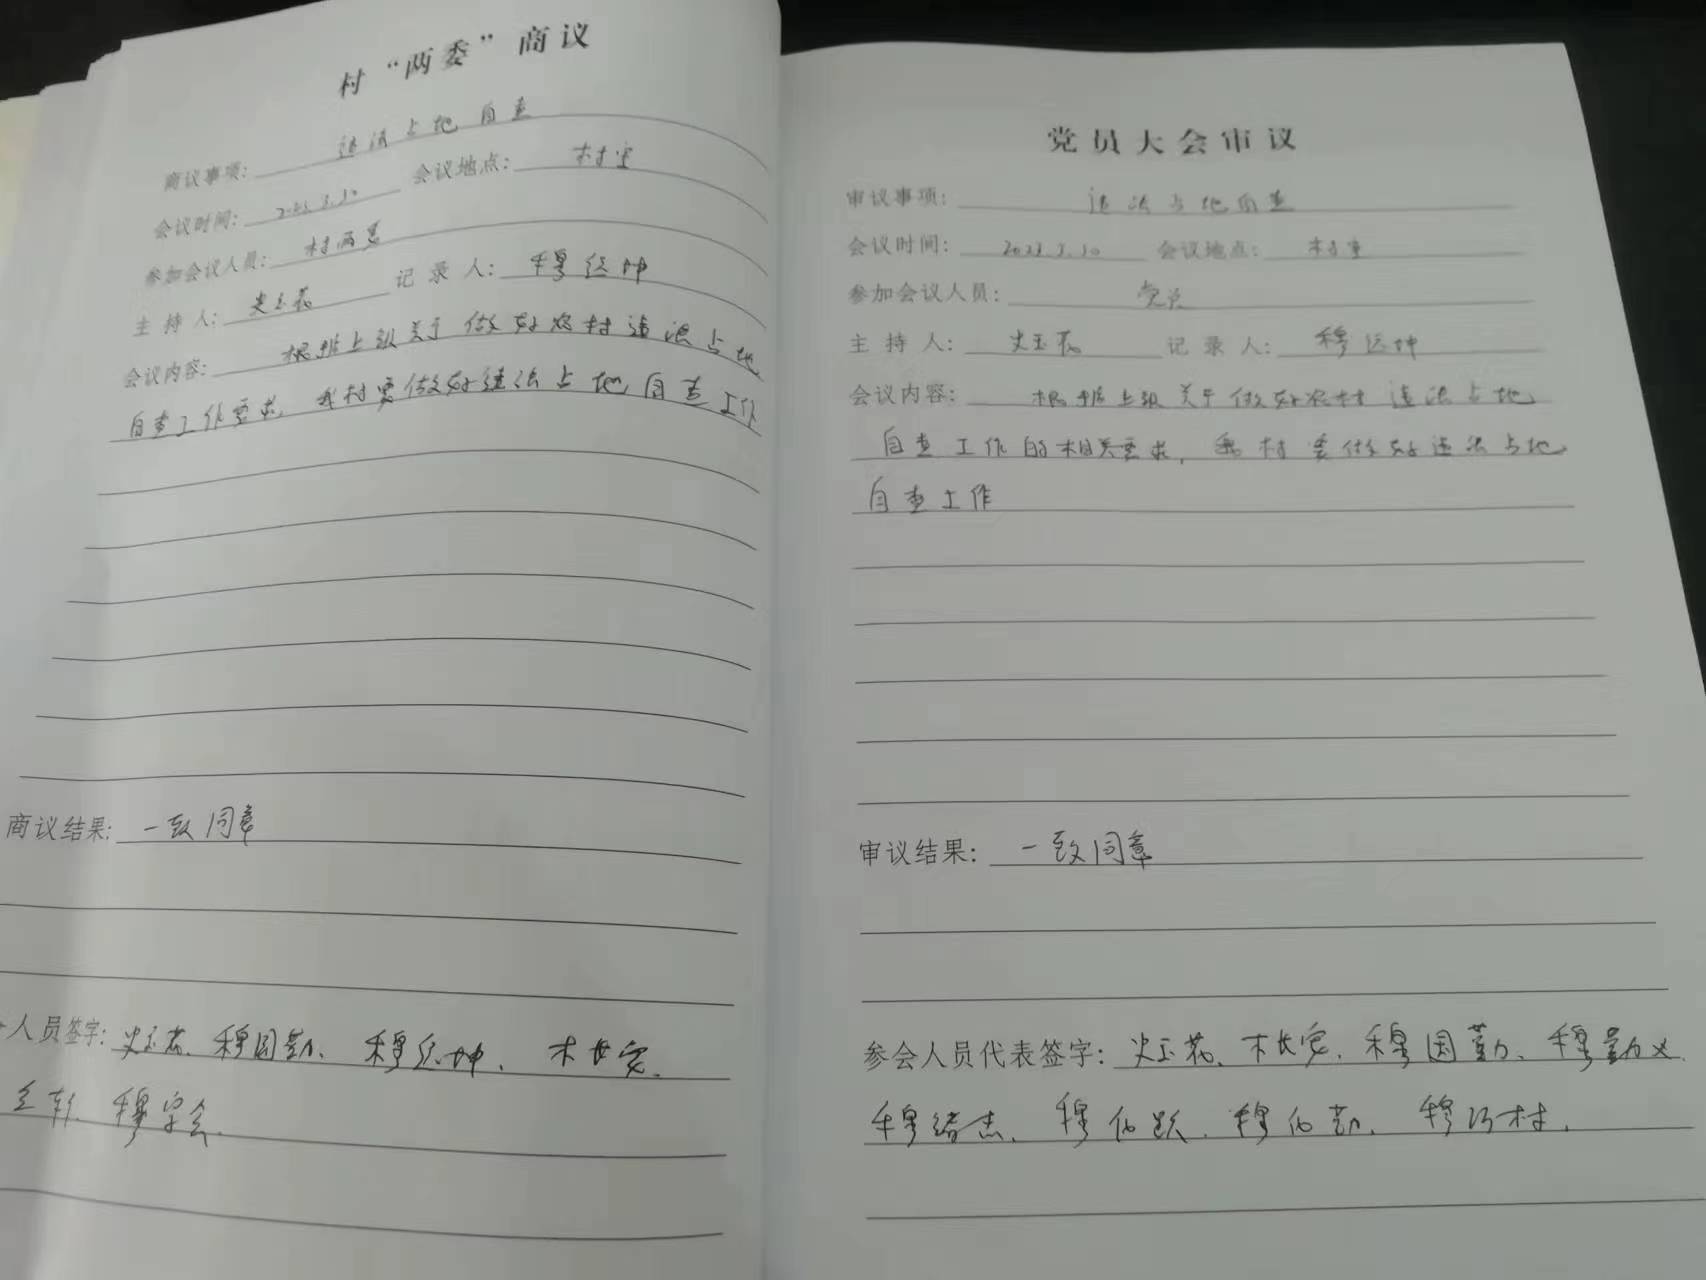 村“两委”商议
商议事项: 违法占地自查
会议时间: 2023.3.10 会议地点: 村室
参加会议人员: 村两委
主持人: 史玉花 记录人: 穆运坤
会议内容: 根据上级关于做好农村违法占地
自查工作要求, 我村要做好违法占地自查工作
商议结果: 一致同意
人员签字: 史玉花、穆国勤、穆运坤、木长安、
穆学会
党员大会审议
审议事项: 违法占地自查
会议时间: 2023.3.10 会议地点: 村室
参加会议人员: 党员
主持人: 史玉花 记录人: 穆运坤
会议内容: 根据上级关于做好农村违法占地
自查工作的相关要求, 我村要做好违法占地
自查工作
审议结果: 一致同意
参会人员代表签字: 史玉花、木长安、穆国勤、穆勤义
穆绪杰、穆伯跃、穆伯勤、穆巧村、